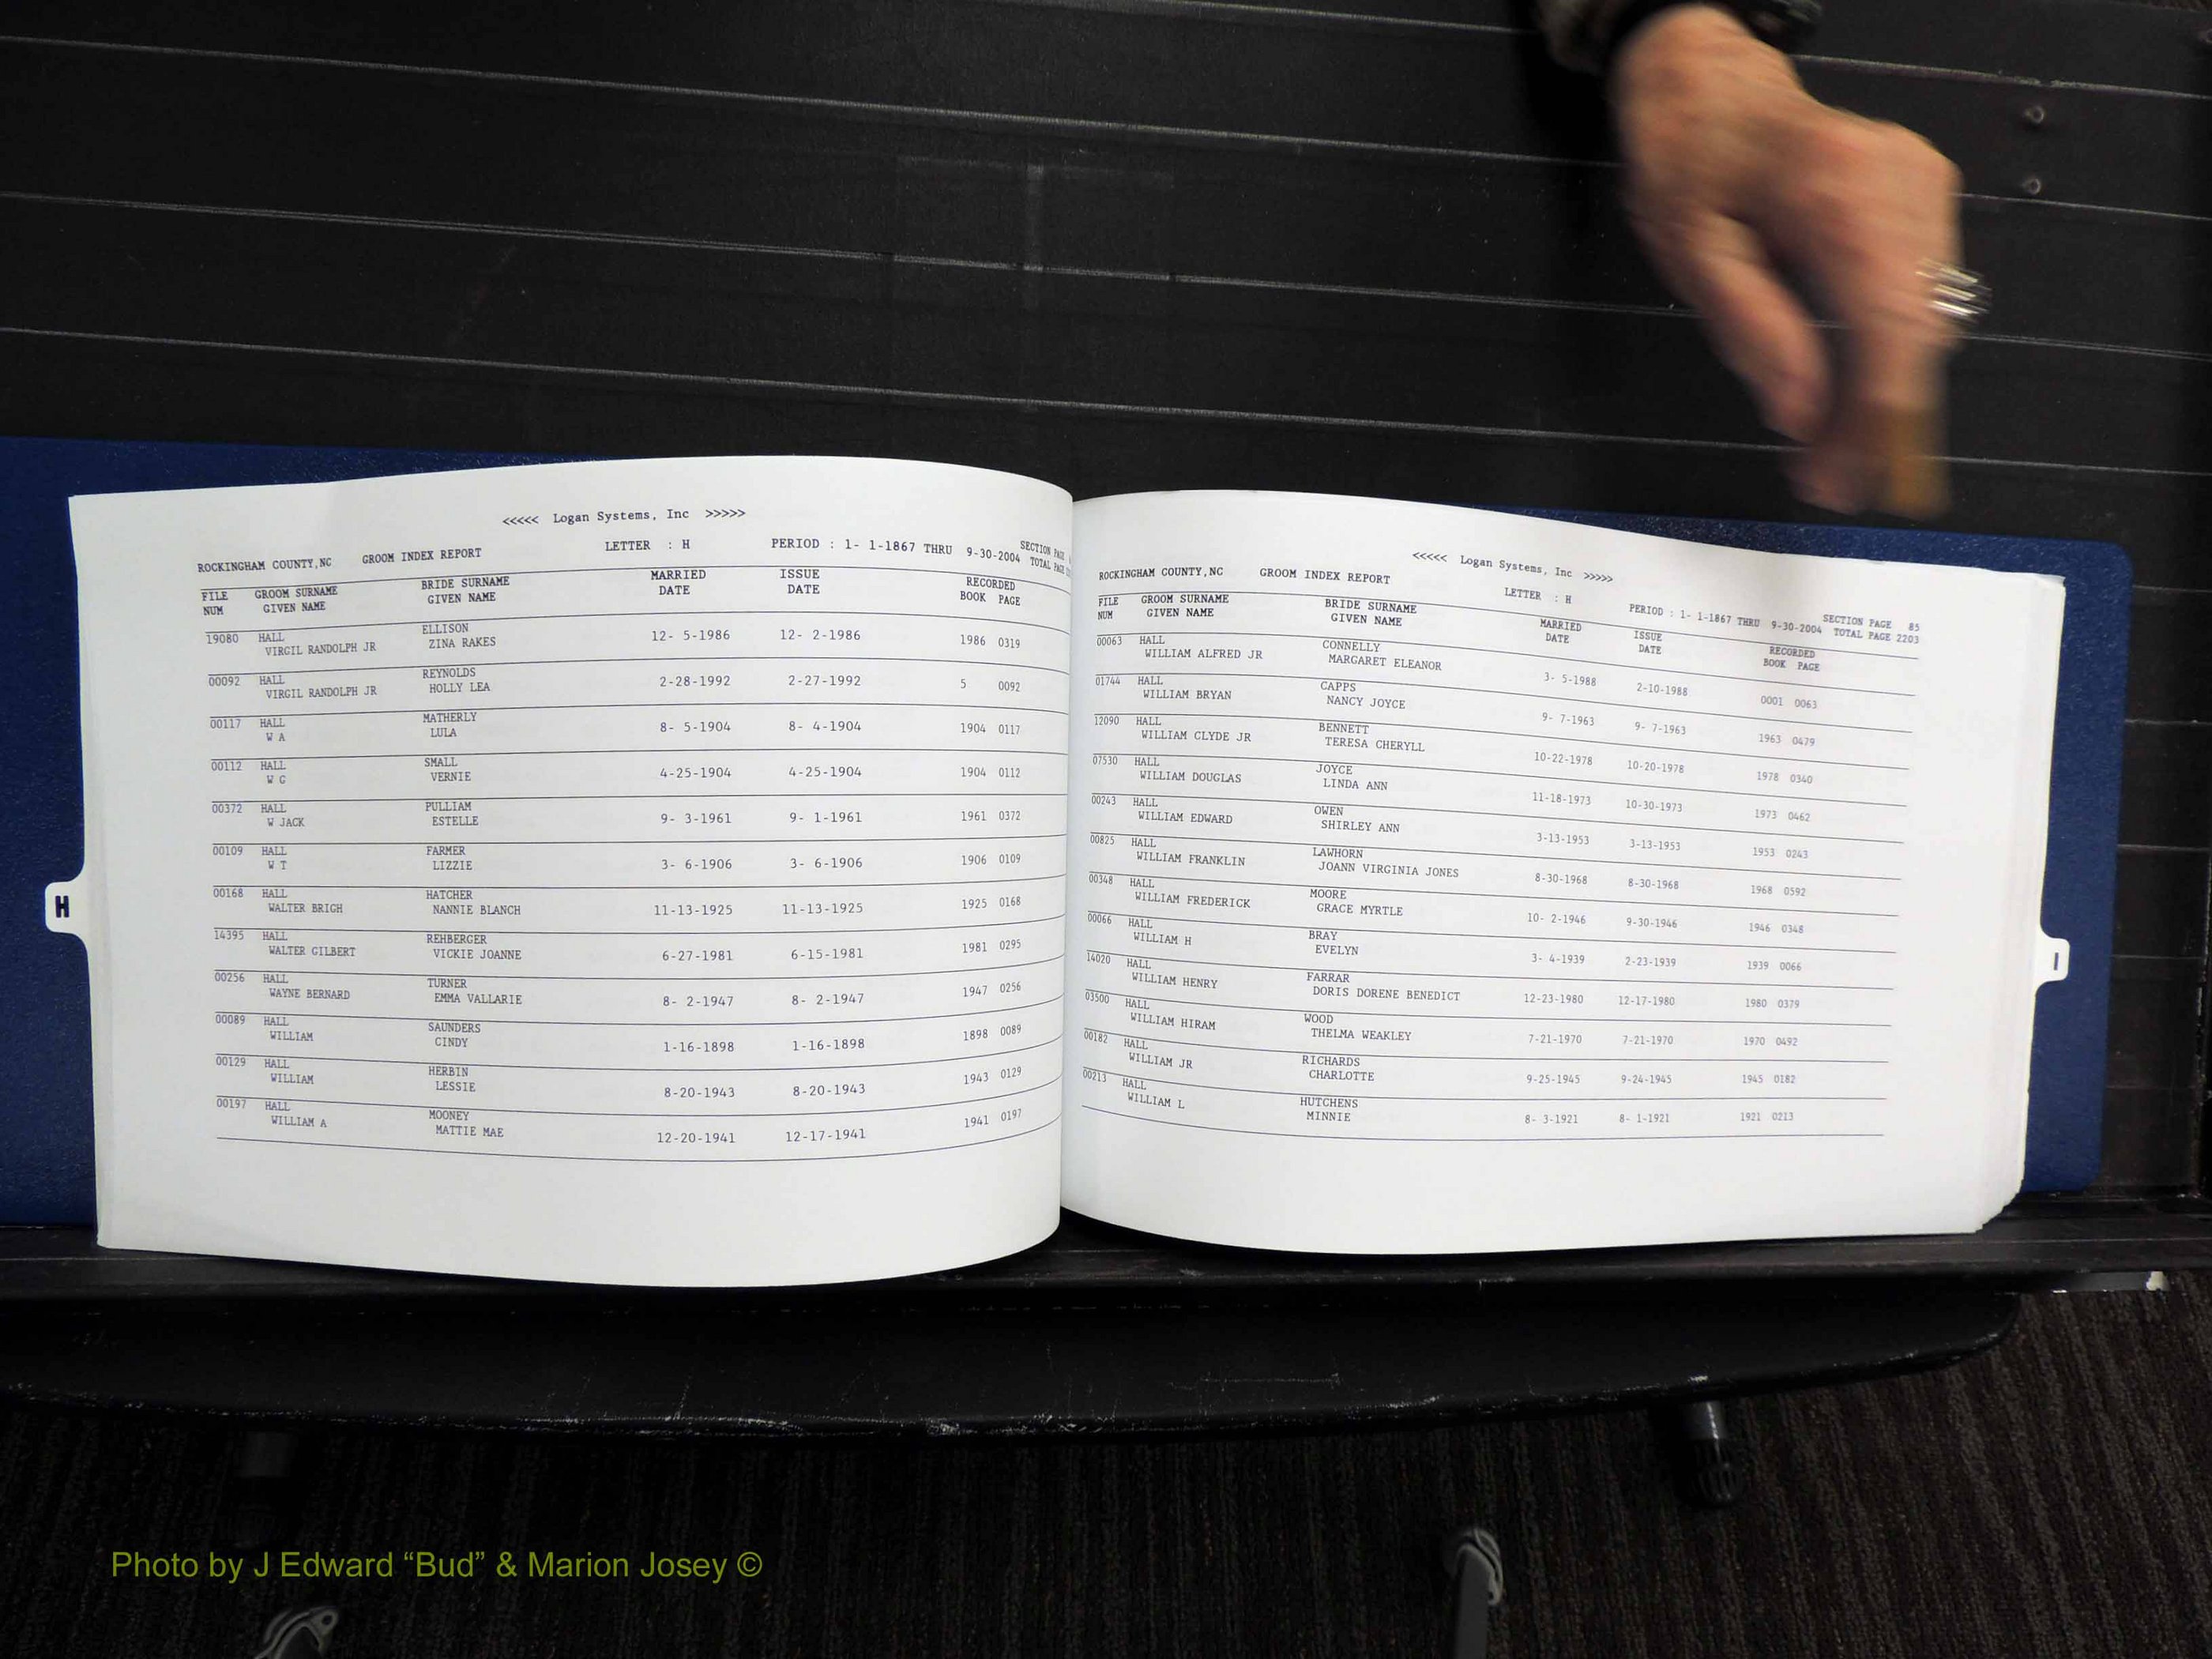 <<<<< Logan Systems, Inc >>>>>
ROCKINGHAM COUNTY,NC GROOM INDEX REPORT LETTER : H PERIOD : 1- 1-1867 THRU 9-30-2004 SECTION PAGE
TOTAL PAGE
FILE GROOM SURNAME BRIDE SURNAME MARRIED ISSUE RECORDED
NUM GIVEN NAME GIVEN NAME DATE DATE BOOK PAGE
19080 HALL ELLISON 12- 5-1986 12- 2-1986 1986 0319
VIRGIL RANDOLPH JR ZINA RAKES
00092 HALL REYNOLDS 2-28-1992 2-27-1992 5 0092
VIRGIL RANDOLPH JR HOLLY LEA
00117 HALL MATHERLY 8- 5-1904 8- 4-1904 1904 0117
W A LULA
00112 HALL SMALL 4-25-1904 4-25-1904 1904 0112
W G VERNIE
00372 HALL PULLIAM 9- 3-1961 9- 1-1961 1961 0372
W JACK ESTELLE
00109 HALL FARMER 3- 6-1906 3- 6-1906 1906 0109
W T LIZZIE
00168 HALL HATCHER 11-13-1925 11-13-1925 1925 0168
WALTER BRIGH NANNIE BLANCH
14395 HALL REHBERGER 6-27-1981 6-15-1981 1981 0295
WALTER GILBERT VICKIE JOANNE
00256 HALL TURNER 8- 2-1947 8- 2-1947 1947 0256
WAYNE BERNARD EMMA VALLARIE
00089 HALL SAUNDERS 1-16-1898 1-16-1898 1898 0089
WILLIAM CINDY
00129 HALL HERBIN 8-20-1943 8-20-1943 1943 0129
WILLIAM LESSIE
00197 HALL MOONEY 12-20-1941 12-17-1941 1941 0197
WILLIAM A MATTIE MAE
H
<<<<< Logan Systems, Inc >>>>>
ROCKINGHAM COUNTY,NC GROOM INDEX REPORT LETTER : H PERIOD : 1- 1-1867 THRU 9-30-2004 SECTION PAGE 85
TOTAL PAGE 2203
FILE GROOM SURNAME BRIDE SURNAME MARRIED ISSUE RECORDED
NUM GIVEN NAME GIVEN NAME DATE DATE BOOK PAGE
00063 HALL CONNELLY 3- 5-1988 2-10-1988 0001 0063
WILLIAM ALFRED JR MARGARET ELEANOR
01744 HALL CAPPS 9- 7-1963 9- 7-1963 1963 0479
WILLIAM BRYAN NANCY JOYCE
12090 HALL BENNETT 10-22-1978 10-20-1978 1978 0340
WILLIAM CLYDE JR TERESA CHERYLL
07530 HALL JOYCE 11-18-1973 10-30-1973 1973 0462
WILLIAM DOUGLAS LINDA ANN
00243 HALL OWEN 3-13-1953 3-13-1953 1953 0243
WILLIAM EDWARD SHIRLEY ANN
00825 HALL LAWHORN 8-30-1968 8-30-1968 1968 0592
WILLIAM FRANKLIN JOANN VIRGINIA JONES
00348 HALL MOORE 10- 2-1946 9-30-1946 1946 0348
WILLIAM FREDERICK GRACE MYRTLE
00066 HALL BRAY 3- 4-1939 2-23-1939 1939 0066
WILLIAM H EVELYN
14020 HALL FARRAR 12-23-1980 12-17-1980 1980 0379
WILLIAM HENRY DORIS DORENE BENEDICT
03500 HALL WOOD 7-21-1970 7-21-1970 1970 0492
WILLIAM HIRAM THELMA WEAKLEY
00182 HALL RICHARDS 9-25-1945 9-24-1945 1945 0182
WILLIAM JR CHARLOTTE
00213 HALL HUTCHENS 8- 3-1921 8- 1-1921 1921 0213
WILLIAM L MINNIE
I
Photo by J Edward “Bud” & Marion Josey ©